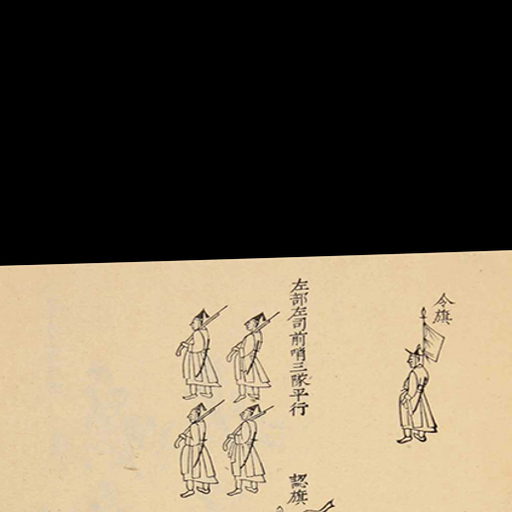 令旗
左部左司前哨三隊平行
認旗